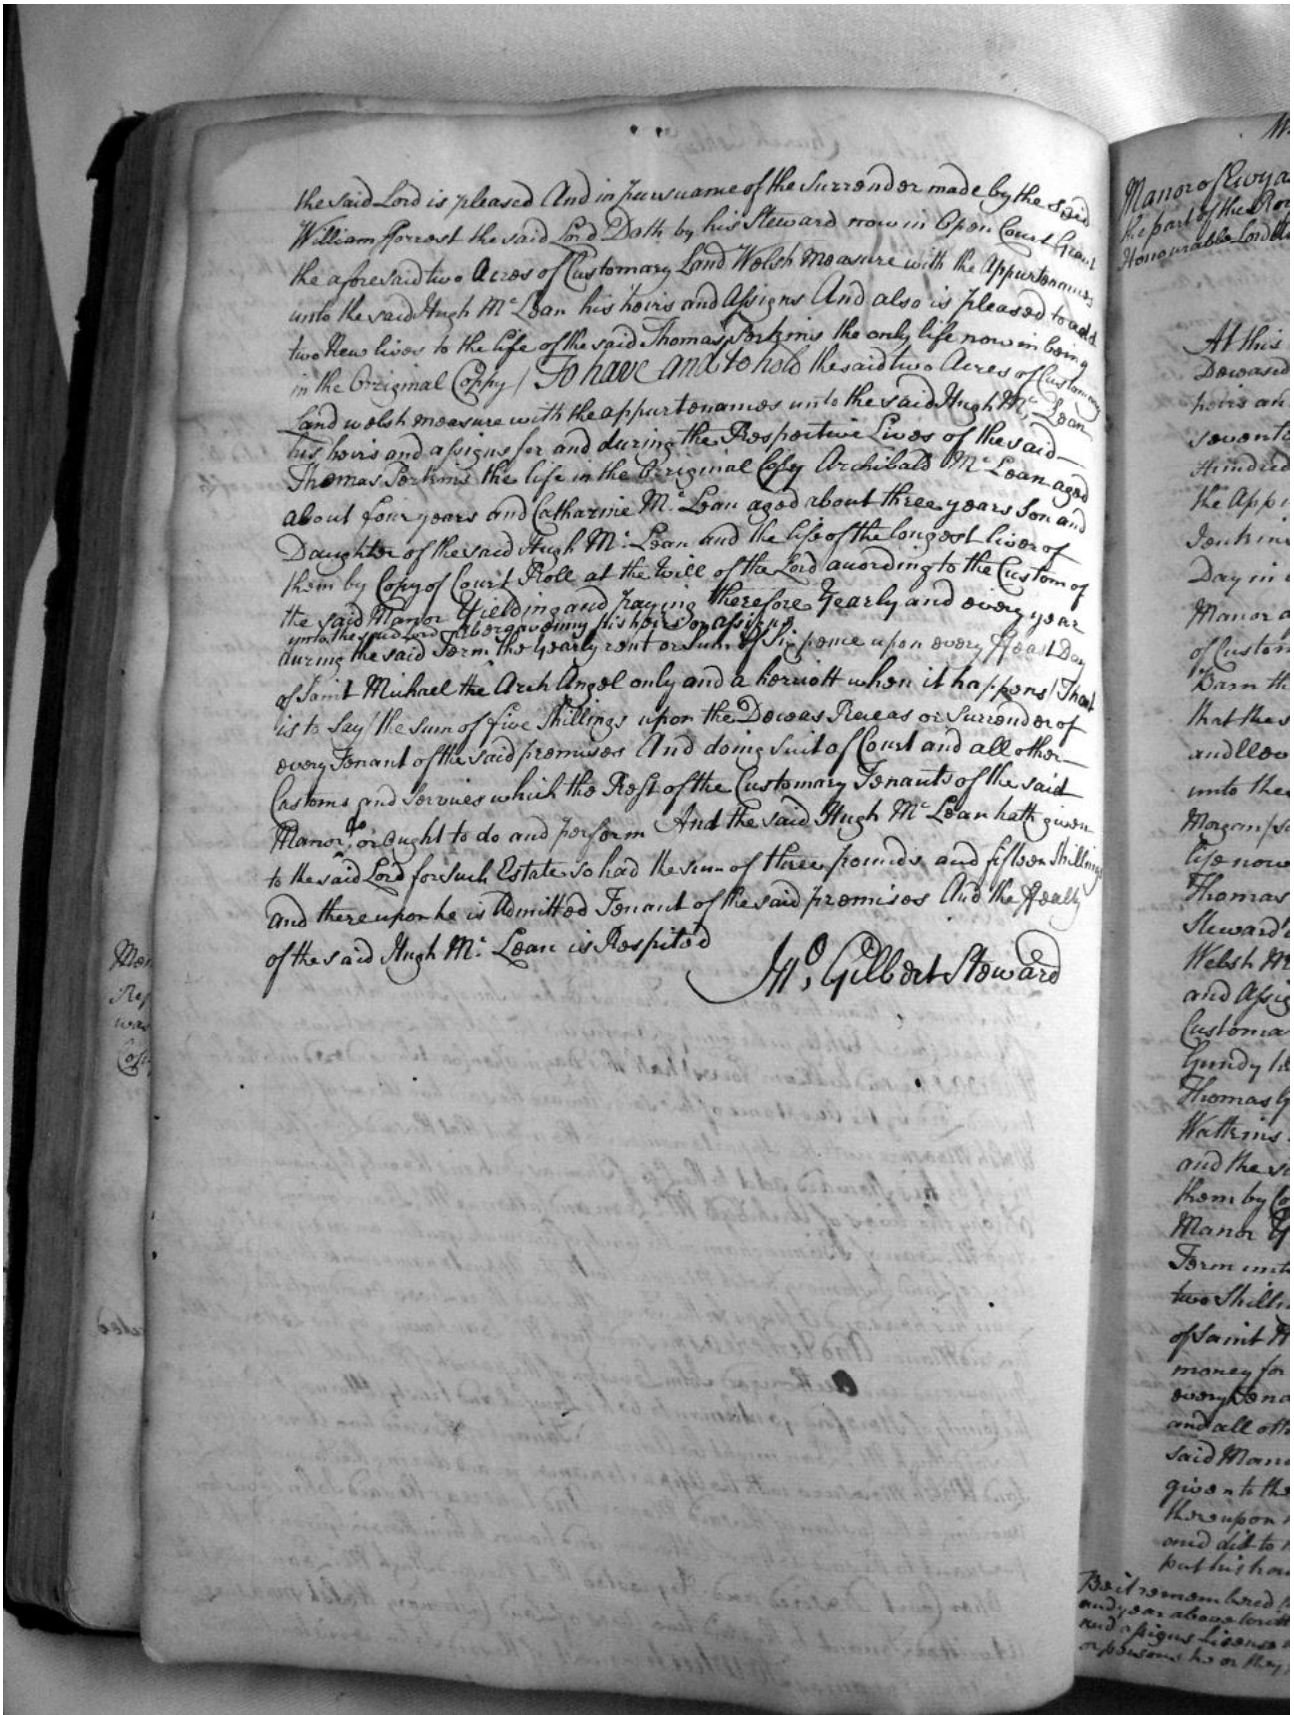 the said Lord is pleased And in pursuance of the Surrender made by the said
William fforrest the said Lord Doth by his Steward now in Open Court Grant
the aforesaid two Acres of Customary Land Welsh Measure with the Appurtenances
unto the said Hugh Mc Lean his heirs and Assigns And also is pleased to add
two New lives to the life of the said Thomas Perkins the only life now in being
in the Original Coppy / To have and to hold the said two Acres of Customary
Land welsh measure with the appurtenances unto the said Hugh Mc Lean
his heirs and assigns for and during the Respective Lives of the said
Thomas Perkins the life in the Original Copy Archibald Mc Lean aged
about four years and Catharine Mc Lean aged about three years Son and
Daughter of the said Hugh Mc Lean and the life of the longest liver of
them by Copy of Court Roll at the Will of the Lord according to the Custom of
the said Manor Yielding and paying therefore Yearly and every year
unto the said Lord Abergavenny his heirs or assigns
during the said Term the yearly rent or Sum of Six pence upon every ffeast Day
of Saint Michael the Arch Angel only and a herriott when it happens / That
is to Say / the sum of five Shillings upon the Deceas Releas or Surrender of
every Tenant of the said premises And doing suit of Court and all other
Customs and Services which the Rest of the Customary Tenants of the said
Manor do or ought to do and perform And the said Hugh Mc Lean hath given
to the said Lord for such Estate so had the sum of three pounds and fifteen Shillings
and thereupon he is Admitted Tenant of the said premises And the ffealty
of the said Hugh Mc Lean is Respited
Gilbert Steward
Manor of
the part of the
Honourable Lord
At this
Deceased
heirs an
Hundred
the App
Day in
Manor a
of Custom
Barn th
that the s
unto the
Morgan
life now
Thomas
Steward
Welsh M
and Assig
Customa
Thomas G
Watkins
and the s
them by Co
Manor Y
Term unto
two Shillin
of Saint M
money for
every Tena
and all oth
said Mano
given to the
thereupon
and did to
put his hand
Be it remembered
and year above
and assigns license
or persons he or they